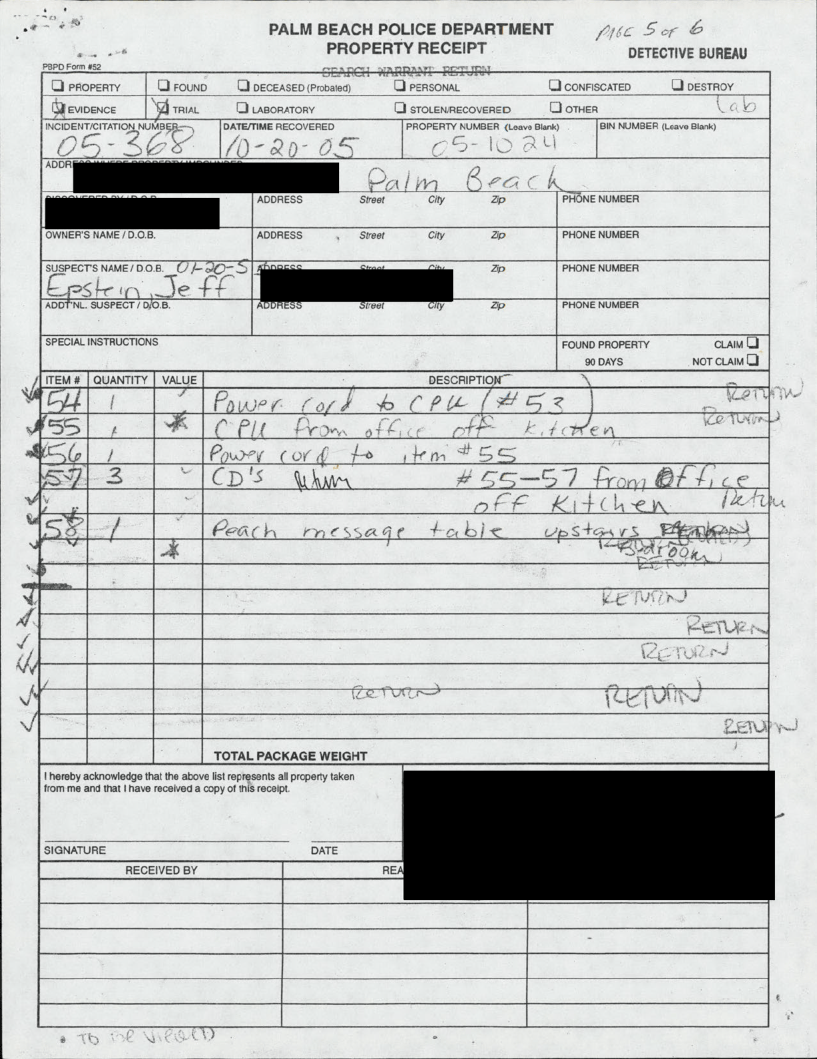 PALM BEACH POLICE DEPARTMENT
PROPERTY RECEIPT
PAGE 5 of 6
DETECTIVE BUREAU
PBPD Form #52
SEARCH WARRANT RETURN
PROPERTY FOUND DECEASED (Probated) PERSONAL CONFISCATED DESTROY
EVIDENCE TRIAL LABORATORY STOLEN/RECOVERED OTHER Lab
INCIDENT/CITATION NUMBER DATE/TIME RECOVERED PROPERTY NUMBER (Leave Blank) BIN NUMBER (Leave Blank)
05-368 10-20-05 05-1024
Palm Beach
ADDRESS Street City Zip PHONE NUMBER
OWNER'S NAME / D.O.B. ADDRESS Street City Zip PHONE NUMBER
SUSPECT'S NAME / D.O.B. 01-20-5 ADDRESS Street City Zip PHONE NUMBER
Epstein, Jeff
ADDT'NL. SUSPECT / D.O.B. ADDRESS Street City Zip PHONE NUMBER
SPECIAL INSTRUCTIONS FOUND PROPERTY CLAIM
90 DAYS NOT CLAIM
ITEM # QUANTITY VALUE DESCRIPTION
54 1 Power cord to CPU (#53) RETURN
55 1 CPU from office off kitchen RETURN
56 1 Power cord to item #55
57 3 CD's Return #55-57 from Office
off Kitchen Return
58 1 Peach message table upstairs
Bedroom
RETURN
RETURN
RETURN
RETURN
RETURN RETURN
RETURN
TOTAL PACKAGE WEIGHT
I hereby acknowledge that the above list represents all property taken
from me and that I have received a copy of this receipt.
SIGNATURE DATE
RECEIVED BY REA
TO BE VIEWED